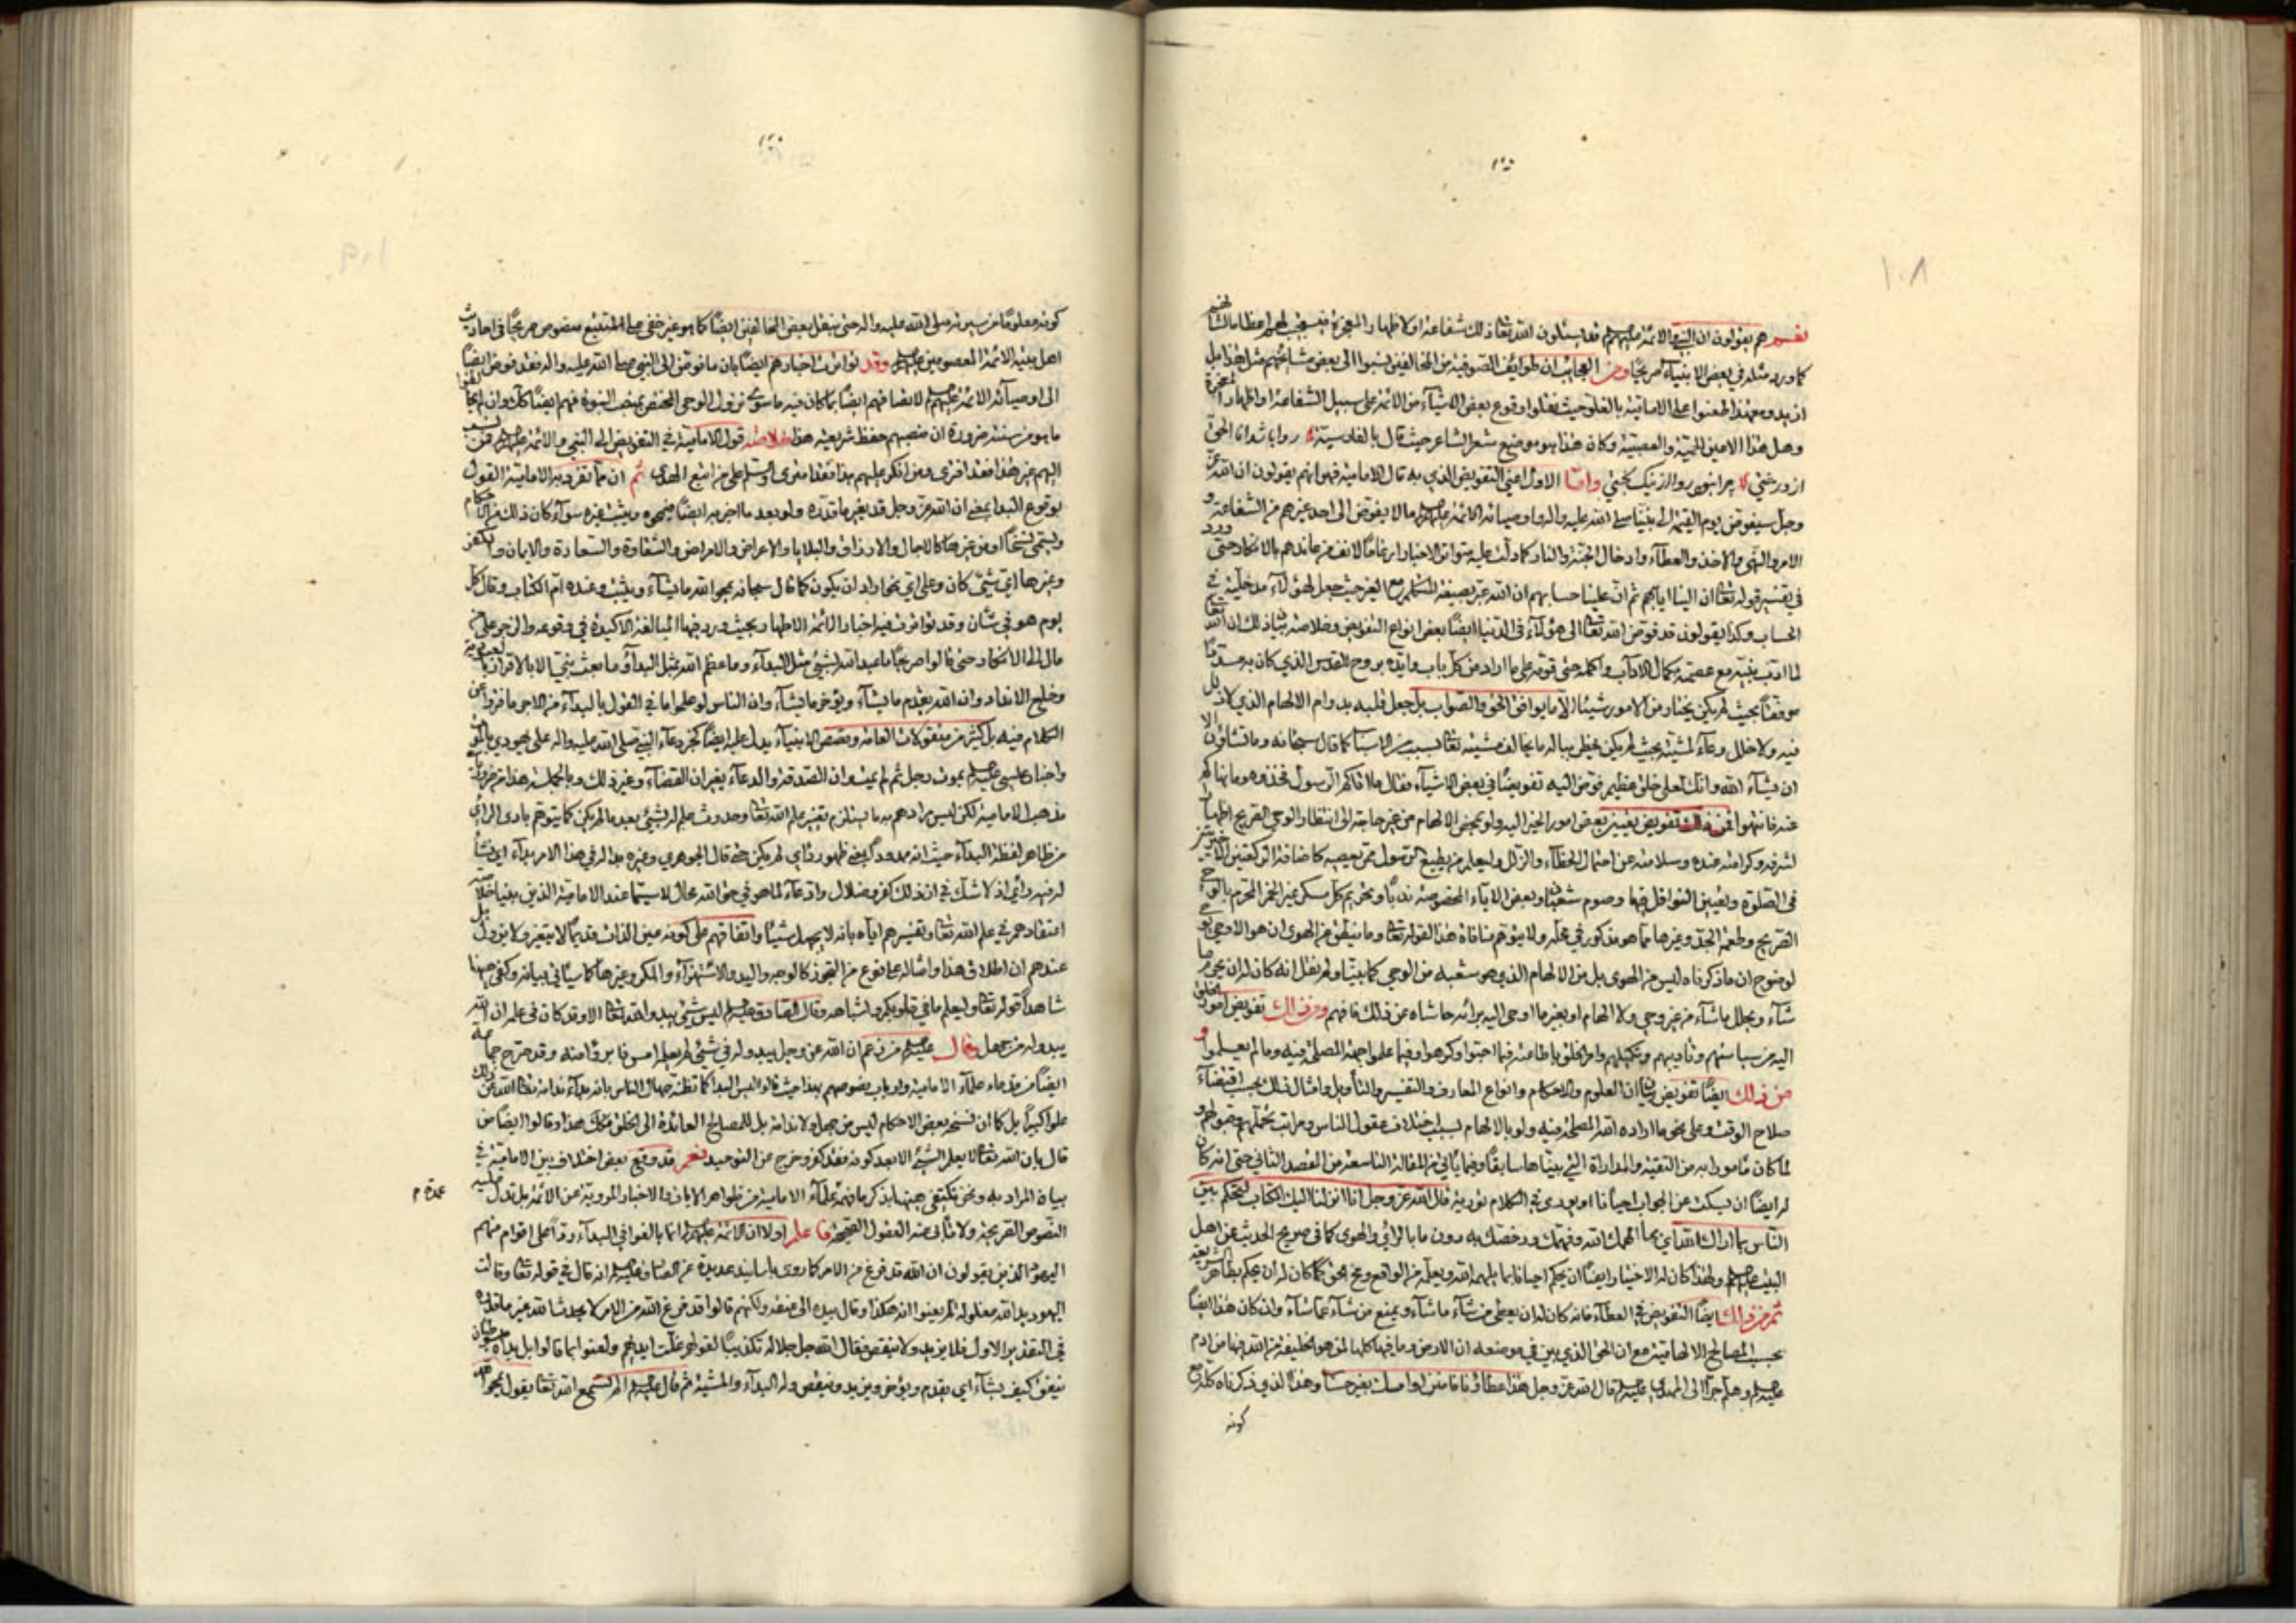 ١٠٨
هم يقولون ان النبي والائمة عليهم السلم قد يسئلون الله تعالى ذلك شفاعة او لاظهار المعجزة فيستجيب لهم اعظاما لشانهم
كما ورد مثله في بعض الانبياء صريحا ومن العجايب ان طوايف الصوفية من المخالفين نسبوا الى بعض مشايخهم مثل هذا بل
ازيد ومع هذا طعنوا على الامامية بالغلو حيث نقلوا وقوع بعض الاشياء من الائمة على سبيل الشفاعة او اظهار المعجزة
وهل هذا الا من الحمية والعصبية وكان هذا هو موضع شعر الشاعر حيث قال بالفارسية
واما الاول اعني التفويض الذي به قال الامامية فهو انهم يقولون ان الله عز
وجل سيفوض يوم القيمة الى نبينا صلى الله عليه واله واوصيائه الائمة عليهم السلم مالا يفوض الى احد غيرهم من الشفاعة و
الامر والنهي والاخذ والعطاء وادخال الجنة والنار كما دلت عليه متواتر الاخبار ارغاما لانف من عاندهم بالانكار حتى ورد
في تفسير قوله تعالى ان الينا ايابهم ثم ان علينا حسابهم ان الله عبر بصيغة المتكلم مع الغير حيث جعل لهؤلاء مدخلية في
الحساب وكذا يقولون قد فوض الله تعالى الى هؤلاء في الدنيا ايضا بعض انواع التفويض وخلاصة بيان ذلك ان الله تعالى
لما ادب نبيه مع عصمته بكمال الاداب واكمله حتى قومه على ما اراد من كل باب وايده بروح القدس الذي كان به مسددا
موفقا بحيث لم يكن يختار من الامور شيئا الا ما يوافق الحق والصواب بل جعل قلبه بدوام الالهام الذي لا زلل
فيه ولا خلل وعاء لمشيته بحيث لم يكن يخطر بباله ما يخالف مشيته تعالى بسبب من الاسباب كما قال سبحانه وما تشاؤن الا
ان يشاء الله وانك لعلى خلق عظيم فوض اليه تفويضا في بعض الاشياء فقال ما اتاكم الرسول فخذوه وما نهاكم
عنه فانتهوا فمن ذلك تفويض تعيين بعض امور الخير اليه ولو بمحض الالهام من غير حاجة الى انتظار الوحي الصريح اظهارا
لشرفه وكرامته عنده وسلامته عن احتمال الخطاء والزلل وليعلم من يطيع الرسول ممن يعصيه كاضافة الركعتين الاخيرتين
في الصلوة وتعيين النوافل فيها وصوم شعبان وبعض الايام المخصوصة ندبا وتحريم كل مسكر غير الخمر المحرم بالوحي
الصريح وطعمة الجد وغيرها مما هو مذكور في محله ولا يتوهم منافاة هذا لقوله تعالى وما ينطق عن الهوى ان هو الا وحي يوحى
لوضوح ان ما ذكرناه ليس من الهوى بل من الالهام الذي هو شعبة من الوحي كما بينا ولم نقل انه كان له ان يحرم ما
شاء ويحلل ما شاء من غير وحي ولا الهام او يغير ما اوحي اليه برائه حاشاه عن ذلك فافهم ومن ذلك تفويض امور الخلق
اليه من سياستهم وتاديبهم وتكميلهم وامر الخلق باطاعته فيما احبوا وكرهوا وفيما علموا جهة المصلحة فيه وما لم يعلموا و
من ذلك ايضا تفويض بيان العلوم والاحكام وانواع المعارف والتفسير والتأويل وامثال ذلك بحسب اقتضاء
صلاح الوقت وعلى نحو ما اراده الله المصلحة فيه ولو بالالهام بسبب اختلاف عقول الناس ومراتب تحملهم وقبولهم و
لما كان مامورا به من التقية والمداراة التي بيناها سابقا وفيما ياتي في المقالة التاسعة من القصد الثاني حتى انه كان
له ايضا ان يسكت عن الجواب احيانا او يوري في الكلام تورية قال الله عز وجل انا انزلنا اليك الكتاب لتحكم بين
الناس بما اراك الله اي بما الهمك الله وفهمك ورخصك به دون ما بالرأي والهوى كما في صريح الحديث عن اهل
البيت عليهم السلم ولهذا كان له الاختيار ايضا ان يحكم احيانا بما يلهمه الله ويعلمه من الواقع ومخ الحق كما كان له ان يحكم بظاهر الشريعة
ثم من ذلك ايضا التفويض في العطاء فانه كان له ان يعطي من شاء ما شاء ويمنع من شاء عما شاء وان كان هذا ايضا
بحسب المصالح الالهامية مع ان الحق الذي بين في موضعه ان الارض وما فيها كلها لمن هو الخليفة من الله فيها من ادم
عليه السلم وهلم جرا الى المهدي عليه السلم قال الله عز وجل هذا عطاؤنا فامنن او امسك بغير حساب وهذا الذي ذكرناه كله مع
كونه
١٠٩
كونه معلوما من سيرته صلى الله عليه واله حتى بنقل بعض المخالفين ايضا كما هو غير خفي على المتتبع منصوص صريحا في احاديث
اهل بيته الائمة المعصومين عليهم السلم وقد تواترت اخبارهم ايضا بان ما فوض الى النبي صلى الله عليه واله فقد فوض ايضا
الى اوصيائه الائمة عليهم السلم لاتصافهم ايضا بما كان فيه ما سوى نزول الوحي المختص بمنصب النبوة فهم ايضا كذلك وان لم يحتاجوا
ما هو من سننه ضرورة ان منصبهم حفظ شريعته هذا خلاصة قول الامامية في التفويض الى النبي والائمة عليهم السلم فمن نسب
اليهم غير هذا فقد افترى ومن انكر عليهم بهذا فقد اغوى والسلام على من اتبع الهدى ثم ان مما تفرد به الامامية القول
بوقوع البداء بمعنى ان الله عز وجل قد يغير ما قدره ولو بعد ما اخبر به ايضا فيمحوه ويثبت غيره سواء كان ذلك في الاحكام
ويسمى نسخا او من غيرها كالاجال والارزاق والبلايا والاعراض والامراض والشقاوة والسعادة والايمان والكفر
وغيرها اي شئ كان وعلى اي نحو اراد ان يكون كما قال سبحانه يمحو الله ما يشاء ويثبت وعنده ام الكتاب وقال كل
يوم هو في شان وقد تواترت فيه اخبار الائمة الاطهار بحيث ورد فيها المبالغة الاكيدة في وقوعه والزجر على من
مال الى الانكار حتى قالوا صريحا ما عبد الله بشئ مثل البداء وما عظم الله بمثل البداء وما بعث نبي الا بالاقرار بالعبودية
وخلع الانداد وان الله يقدم ما يشاء ويؤخر ما يشاء وان الناس لو علموا ما في القول بالبداء من الاجر ما فتروا عن
الكلام فيه بل كثير من منقولات العامة وقصص الانبياء يدل عليه ايضا كخبر دعاء النبي صلى الله عليه واله على يهودي بالموت
واخبار عيسى عليه السلم بموت رجل ثم لم يمت وان الصدقة والدعاء يغيران القضاء وغير ذلك وبالجملة هذا من ضروريات
مذهب الامامية لكن ليس مرادهم به ما يستلزم تغير علم الله تعالى وحدوث علم له بشئ بعد ما لم يكن كما يتوهم بادى الراي
من ظاهر لفظة البداء حيث انه ممدود بمعنى ظهور رأي لم يكن حتى قال الجوهري وغيره بدا له في هذا الامر بداء اي نشأ
له فيه رأي اذ لا شك في ان ذلك كفر وضلال وادعاء لما هو في حق الله محال لا سيما عند الامامية الذين بينا خلاصة
اعتقادهم في علم الله تعالى وتفسيرهم اياه بانه لا يجهل شيئا واتفاقهم على كونه عين الذات قديما لا يتغير ولا يزول بل
عندهم ان اطلاق هذا وامثاله عليه نوع من التجوز كالوجه واليد والاستهزاء والمكر وغيرها كما سيأتي بيانه وكفى ههنا
شاهدا قوله تعالى وليعلم ما في قلوبكم واشباهه وقال الصادق عليه السلم ليس شئ يبدو لله تعالى الا وقد كان في علمه ان الله
يبدو له من جهل وقال عليه السلم من زعم ان الله عز وجل يبدو له في شئ لم يعلمه امس فابرؤا منه وقد صرح جماعة
ايضا من قدماء علماء الامامية وارباب نصوصهم بهذا حيث قالوا ليس البدا كما تظنه جهال الناس بانه بداء ندامة تعالى الله عن ذلك
علوا كبيرا بل كما ان نسخه بعض الاحكام ليس من جهل ولا ندامة بل للمصالح العائدة الى الخلق فكذلك هذا وقالوا ايضا من
قال بان الله تعالى لا يعلم الشئ الا بعد كونه فقد كفر وخرج عن التوحيد نعم قد وقع بعض اختلاف بين الامامية في
بيان المراد به ونحن نكتفي ههنا بذكر ما فهمه عمدة علماء الامامية من ظواهر الايات والاخبار المروية عن الائمة بل تدل عليه
النصوص الصريحة ولا تأبى عنه العقول الصحيحة فاعلم اولا ان الائمة عليهم السلم انما بالغوا في البداء ردا على اقوام منهم
اليهود الذين يقولون ان الله قد فرغ من الامر كما روى باسانيد عديدة عن الصادق عليه السلم انه قال في قوله تعالى وقالت
اليهود يد الله مغلولة لم يعنوا انه هكذا وقال بيده الى عنقه ولكنهم قالوا قد فرغ الله من الامر لا يحدث الله غير ما قدره
في التقدير الاول فلا يزيد ولا ينقص فقال الله جل جلاله تكذيبا لقولهم غلت ايديهم ولعنوا بما قالوا بل يداه مبسوطتان
ينفق كيف يشاء اي يقدم ويؤخر ويزيد وينقص وله البداء والمشية ثم قال عليه السلم الم تسمع الله تعالى يقول يمحو الله